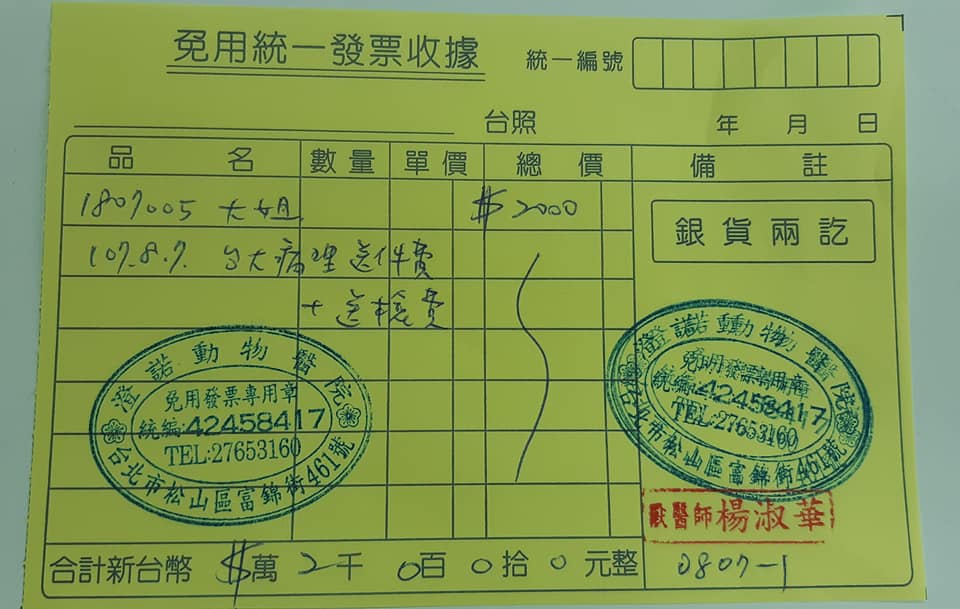 免用統一發票收據
統一編號
台照 年 月 日
品名 數量 單價 總價 備註
1807005 大姐 $2000
銀貨兩訖
107.8.7. 台大病理送件費
+送檢費
澄諾動物醫院
免用發票專用章
統編:42458417
TEL:27653160
台北市松山區富錦街461號
澄諾動物醫院
免用發票專用章
統編:42458417
TEL:27653160
台北市松山區富錦街461號
獸醫師楊淑華
合計新台幣 $萬 2千 0百 0拾 0元整
0807-1